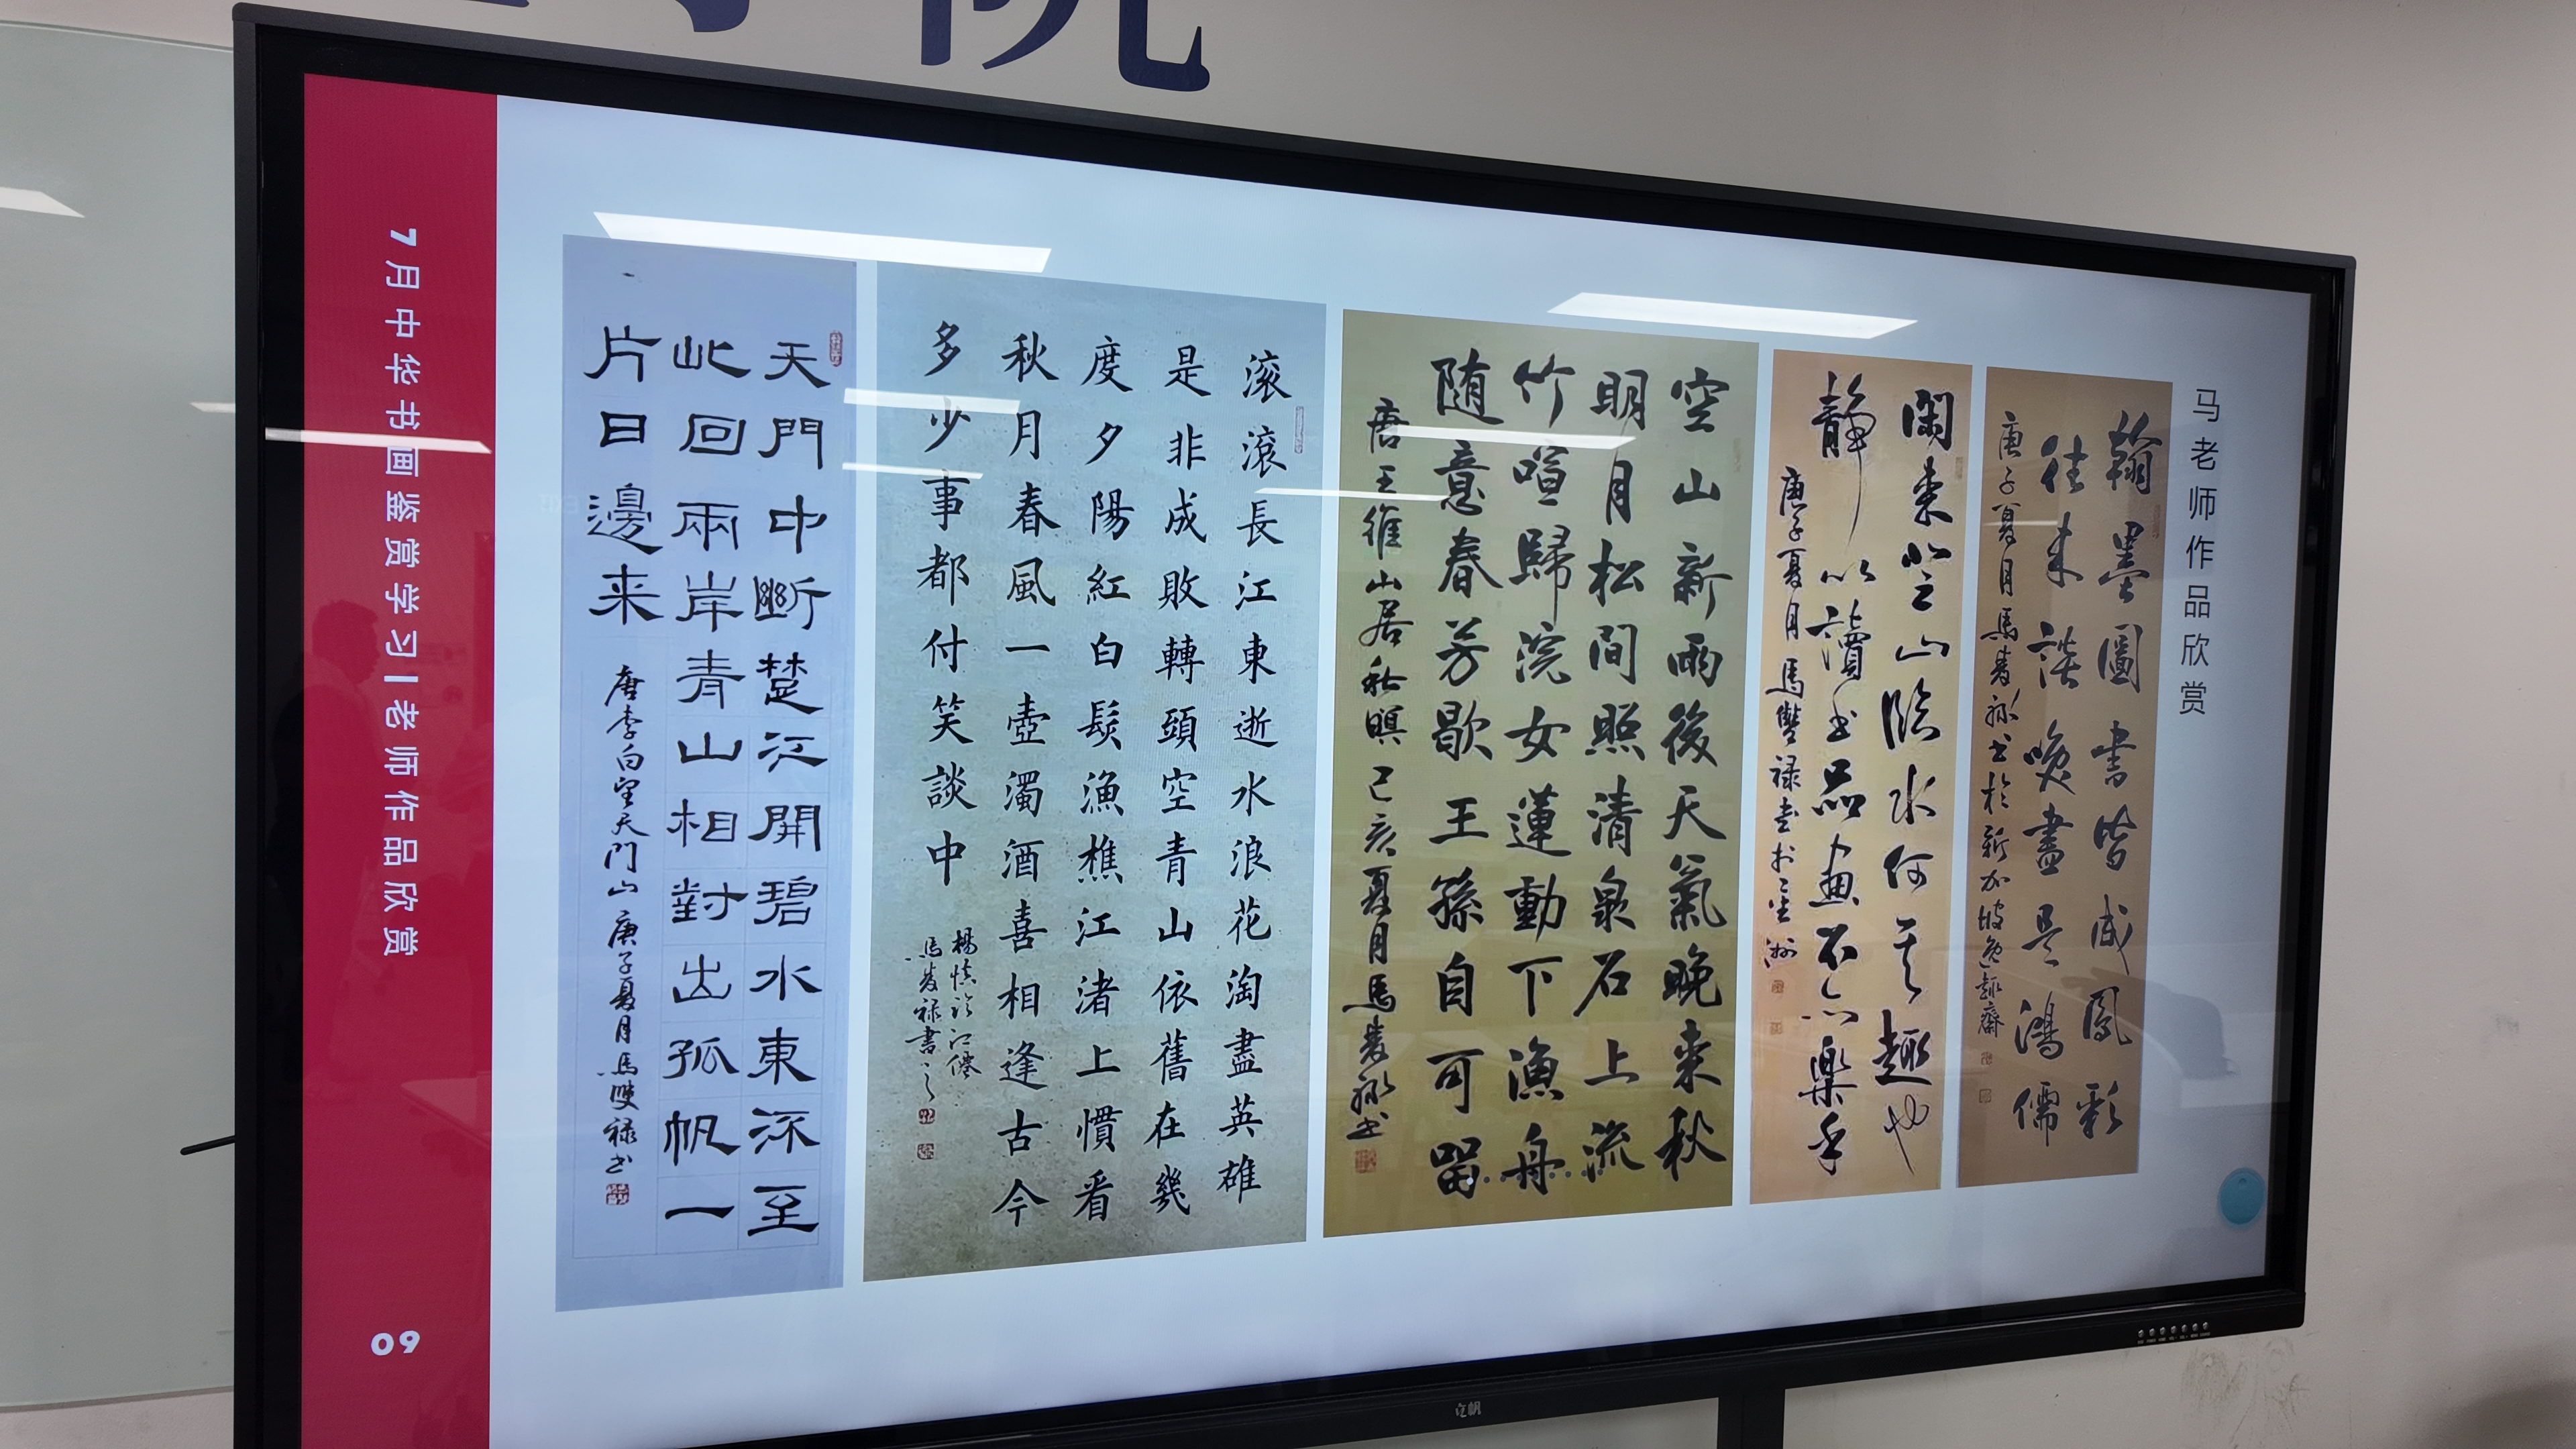 院
马老师作品欣赏
翰墨圖書皆成鳳彩
往来談咲盡是鴻儒
庚子夏月馬双禄书於新加坡逸趣齋
閑来登山臨水何其趣也
靜以讀书品画不亦樂乎
庚子夏月馬雙禄书於星洲
空山新雨後天氣晚来秋
明月松間照清泉石上流
竹喧歸浣女蓮動下漁舟
随意春芳歇王孫自可留
唐王維山居秋暝己亥夏月馬双禄书
滚滚長江東逝水浪花淘盡英雄
是非成敗轉頭空青山依舊在幾
度夕陽紅白髮漁樵江渚上慣看
秋月春風一壺濁酒喜相逢古今
多少事都付笑談中
楊慎临江僊
馬双禄書之
天門中斷楚江開碧水東流至
此回兩岸青山相對出孤帆一
片日邊来
唐李白望天門山庚子夏月馬雙禄书
7月中华书画鉴赏学习|老师作品欣赏
09